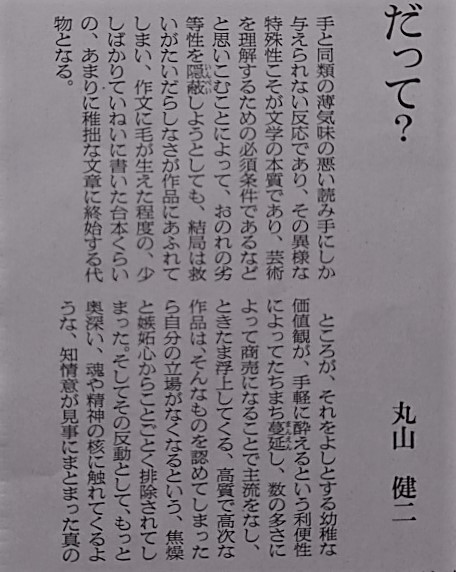 だって?
丸山 健二
手と同類の薄気味の悪い読み手にしか
与えられない反応であり、その異様な
特殊性こそが文学の本質であり、芸術
を理解するための必須条件であるなど
と思いこむことによって、おのれの劣
等性を隠蔽しようとしても、結局は救
いがたいだらしなさが作品にあふれて
しまい、作文に毛が生えた程度の、少
しばかりていねいに書いた台本くらい
の、あまりに稚拙な文章に終始する代
物となる。
ところが、それをよしとする幼稚な
価値観が、手軽に酔えるという利便性
によってたちまち蔓延し、数の多さに
よって商売になることで主流をなし、
ときたま浮上してくる、高質で高次な
作品は、そんなものを認めてしまった
ら自分の立場がなくなるという、焦燥
と嫉妬心からことごとく排除されてし
まった。そしてその反動として、もっと
奥深い、魂や精神の核に触れてくるよ
うな、知情意が見事にまとまった真の